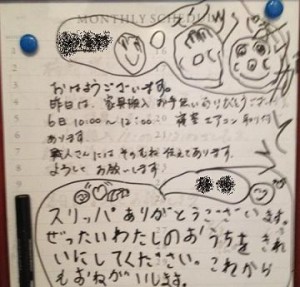 MONTHLY SCHEDUL
おはようございます。
昨日は、家具搬入 お手伝いありがとうござい
6日 10:00〜12:00
エアコン取付
あります。
職人さんには そのむね 伝えてあります。
ようしく お願いします。
スリッパありがとうございます。
ぜったいわたしのおうちをきれ
いにしてください。これから
もおねがいします。